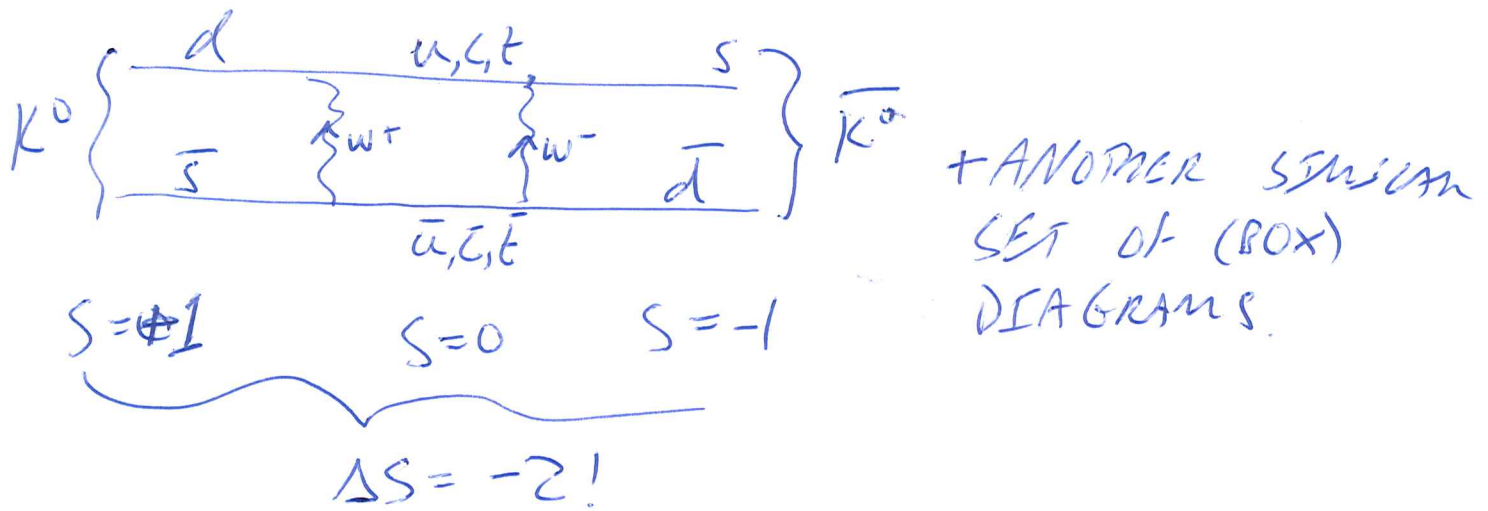 d u, c, t s
K⁰ W⁺ W⁻ K̅⁰
s̅ d̅
u̅, c̅, t̅
+ ANOTHER SIMILAR
SET OF (BOX)
DIAGRAMS.
S = +1 S = 0 S = -1
ΔS = -2!